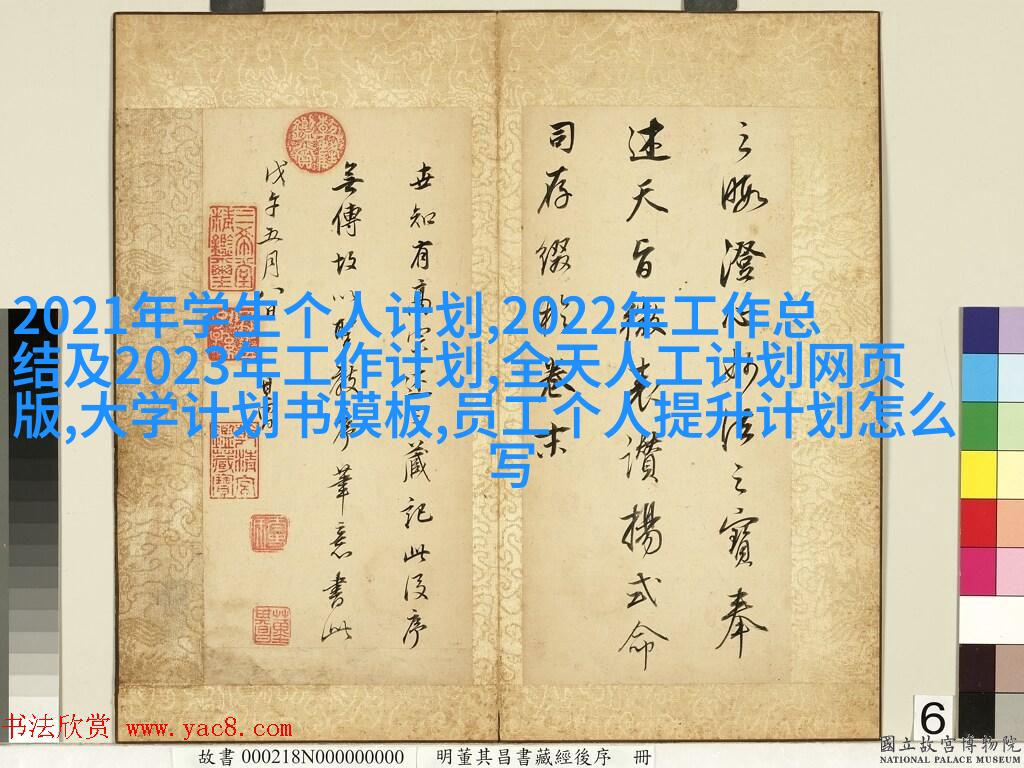 2021年学生个人计划,2022年工作总
结及2023年工作计划,全天人工计划网页
版,大学计划书模板,员工个人提升计划怎么
写
之晦澄心妙法之寶奉
述天旨微表讚揚式命
司存綴於卷末
世知有高宗述三藏記此後序
無傳故以聖教序筆意書此
戊午五月八日 其昌
三希堂
精鑑璽
书法欣赏 www.yac8.com
故書 000218N000000000
明董其昌書藏經後序 冊
6
國立故宮博物院
NATIONAL PALACE MUSEUM